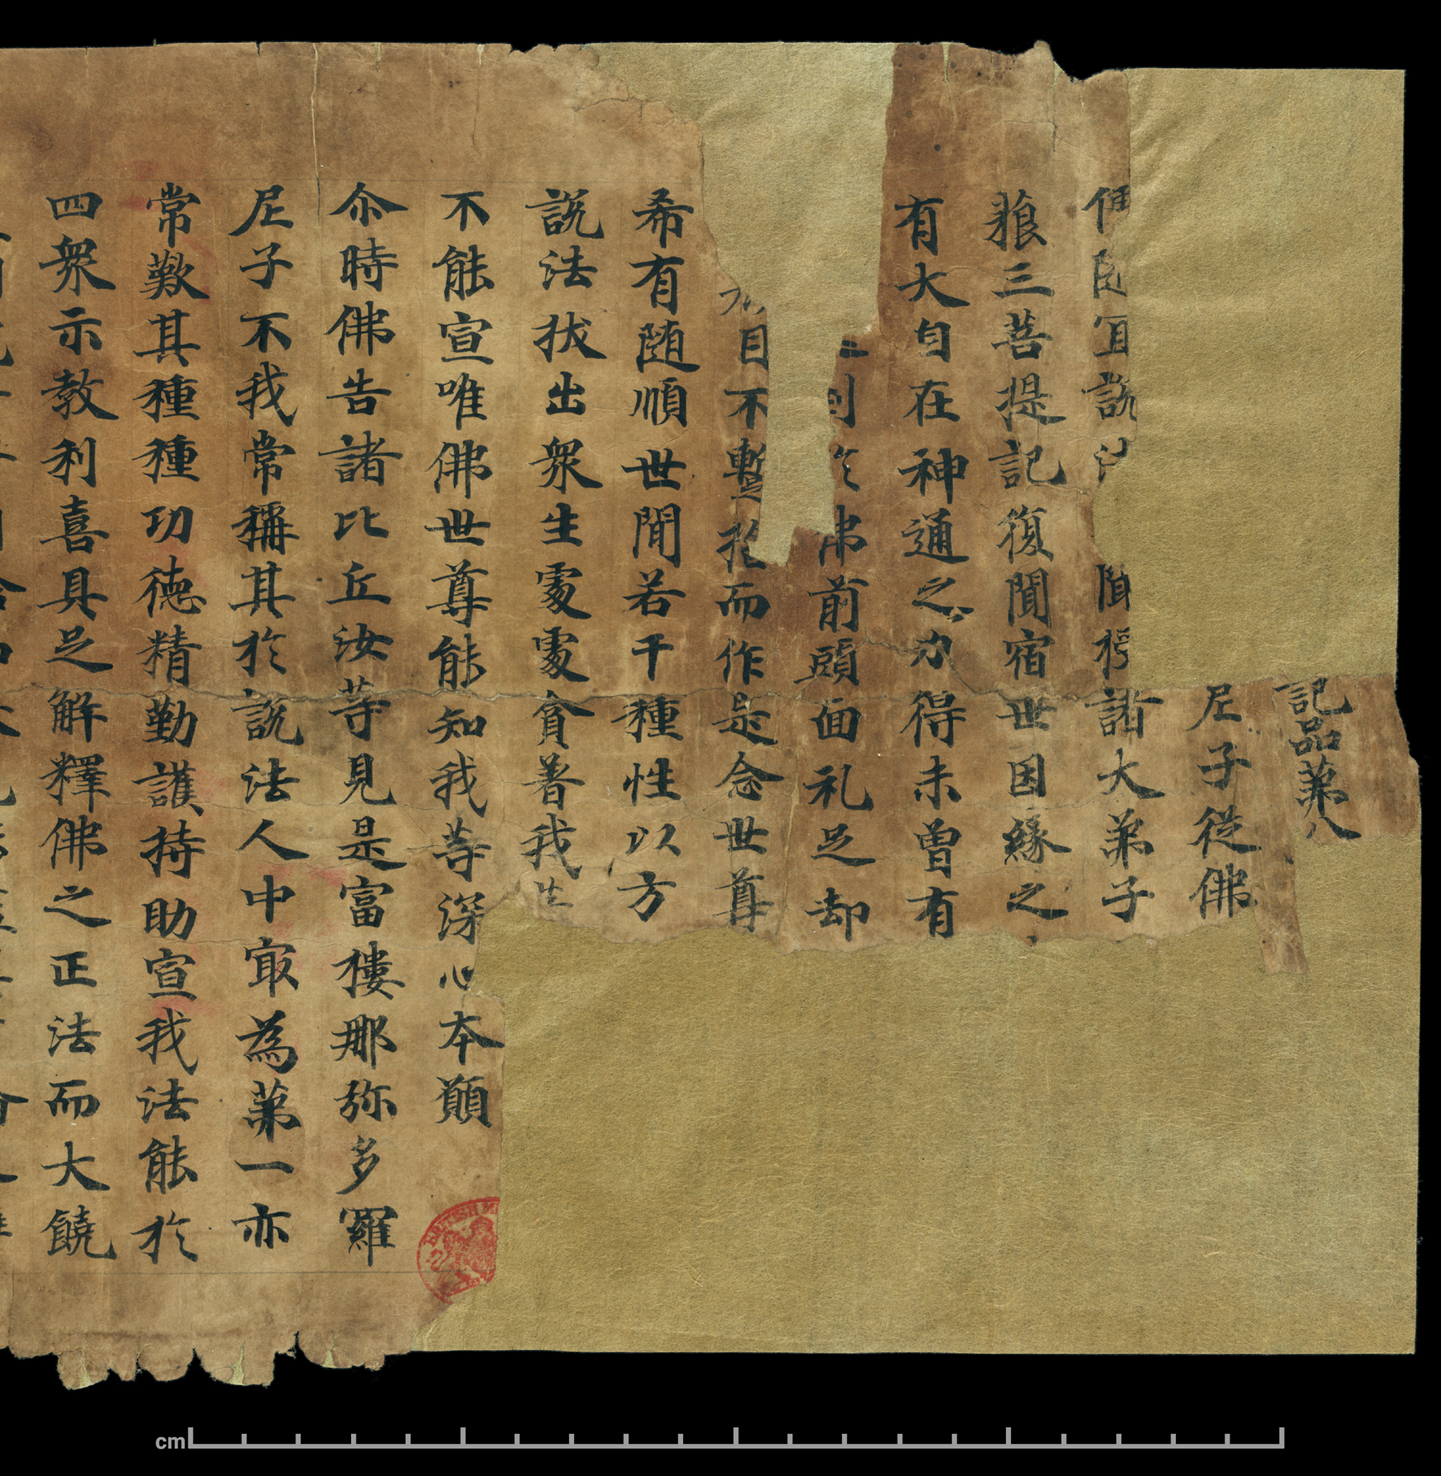 記品苐八
尼子從佛
便随宜說法聞授諸大弟子
貌三菩提記復聞宿世因緣之
有大自在神通之力得未曾有
到於佛前頭面礼足却
目不暫捨而作是念世尊
希有随順世間若干種性以方
說法拔出衆生處處貪著我
不能宣唯佛世尊能知我等深心本願
尒時佛告諸比丘汝等見是富樓那弥多羅
尼子不我常稱其於說法人中冣為苐一亦
常歎其種種功德精勤護持助宣我法能於
四衆示教利喜具足解釋佛之正法而大饒
cm